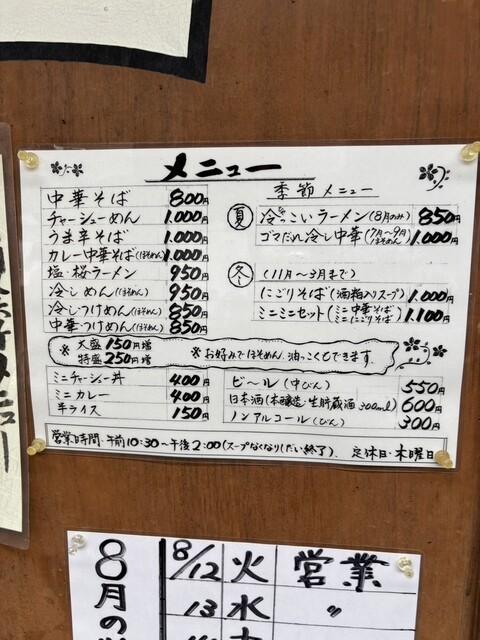 メニュー
中華そば 800円
チャーシューめん 1.000円
うま辛そば 1.000円
カレー中華そば(ほそめん) 1.000円
塩・桜ラーメン 950円
冷しめん(ほそめん) 950円
冷しつけめん(ほそめん) 850円
中華つけめん(ほそめん) 850円
季節メニュー
夏 冷やっこいラーメン(8月のみ) 850円
ゴマだれ冷し中華(7月〜9月 ほそめん) 1.000円
冬 (11月〜3月まで)
にごりそば(酒粕入りスープ) 1.000円
ミニミニセット(ミニ中華そば ミニにごりそば) 1.100円
※ 大盛 150円増
特盛 250円増
※ お好みでほそめん、油っこくもできます。
ミニチャーシュー丼 400円
ミニカレー 400円
半ライス 150円
ビール(中びん) 550円
日本酒(本醸造・生貯蔵酒300ml) 600円
ノンアルコール(びん) 300円
営業時間・午前10:30〜午後2:00(スープなくなりしだい終了)、 定休日・木曜日
8月の
8/12 火 営業
13 水 〃